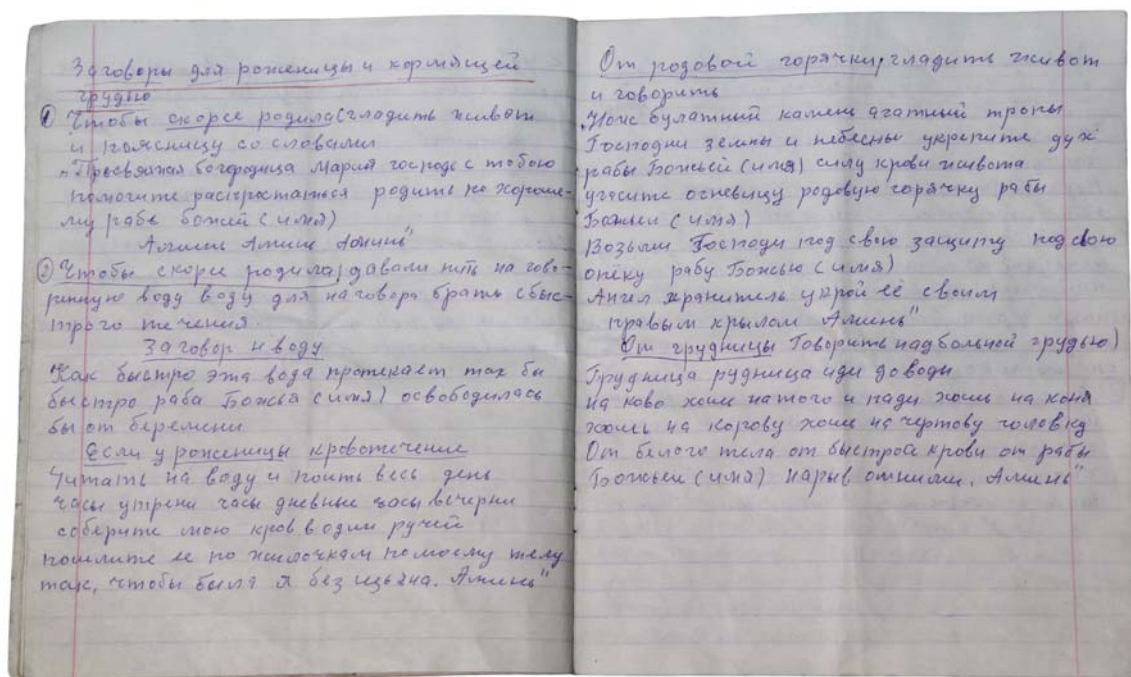 Заговоры для роженицы и кормящей
грудью
① Чтобы скорее родила (гладить живот
и поясницу со словами
„Пресвятая богородица Мария господь с тобою
помогите распростаться родить по хороше-
му рабе божей (имя)
Аминь Аминь Аминь"
② Чтобы скоре родила, давали пить на гово-
ренную воду воду для наговора брать с быс-
трого течения.
Заговор н воду
"Как быстро эта вода протекает так бы
быстро раба Божья (имя) освободилась
бы от беремени
Если у роженицы кровотечение
Читать на воду и поить весь день
часы утрени часы дневные часы вечерни
соберите мою кров в один ручей
пошлите ее по жилочкам по моему телу
так, чтобы была я без изьяна. Аминь"
От родовой горячки, гладить живот
и говорить
„Нож булатный камень агатный тропы
Господни земны и небесны укрепите дух
рабы Божьей (имя) силу крови живота
угасите огневицу родовую горячку рабы
Божьеи (имя)
Возьми Господи под свою защиту под свою
опеку рабу Божью (имя)
Ангел хранитель укрой её своим
правым крылом Аминь"
От грудницы Говорить над больной грудью)
Грудница рудница иди до воды
на ково хошь на того и пади хошь на коня
хошь на корову хошь на чертову головку
От белого тела от быстрой крови от рабы
Божьеи (имя) нарыв отними. Аминь"